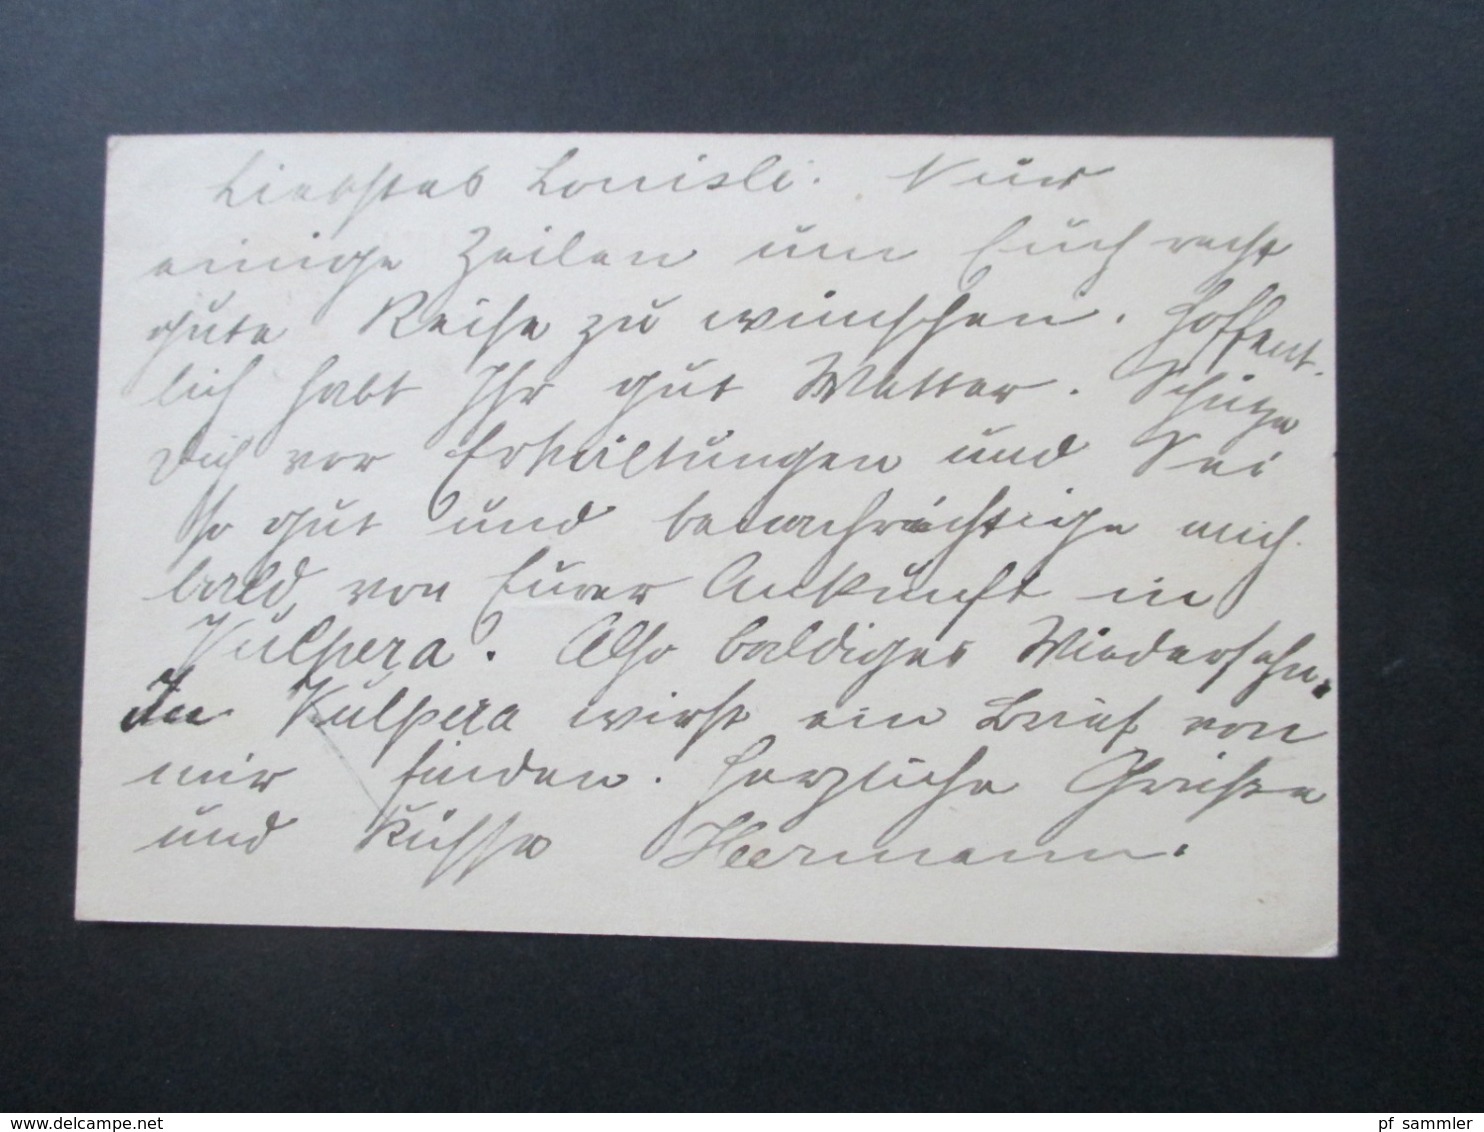 Liebstes Louisli. Nur
einige Zeilen um Euch recht
gute Reise zu wünschen. Hoffent-
lich habt Ihr gut Wetter. Schütze
Dich vor Erkältungen und Sei
so gut und benachrichtige mich
bald von Eurer Ankunft in
Vulpera. Also baldiges Wiedersehn.
In Vulpera wirst ein Brief von
mir finden. Herzliche Grüsse
und Küsse Hermann.
pf_sammler
www.delcampe.net